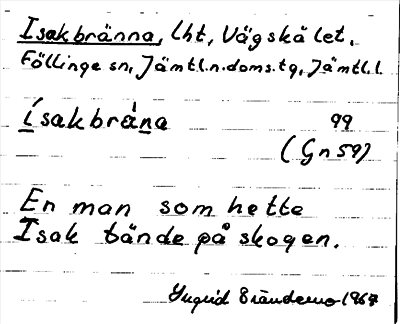 Isakbränna, lht, Vägskälet,
Föllinge sn, Jämtl.n.doms.tg, Jämtl.l
Ísakbrà̱na 99
(Gn59)
En man som hette
Isak bände på skogen.
Ingrid Brändemo 1967